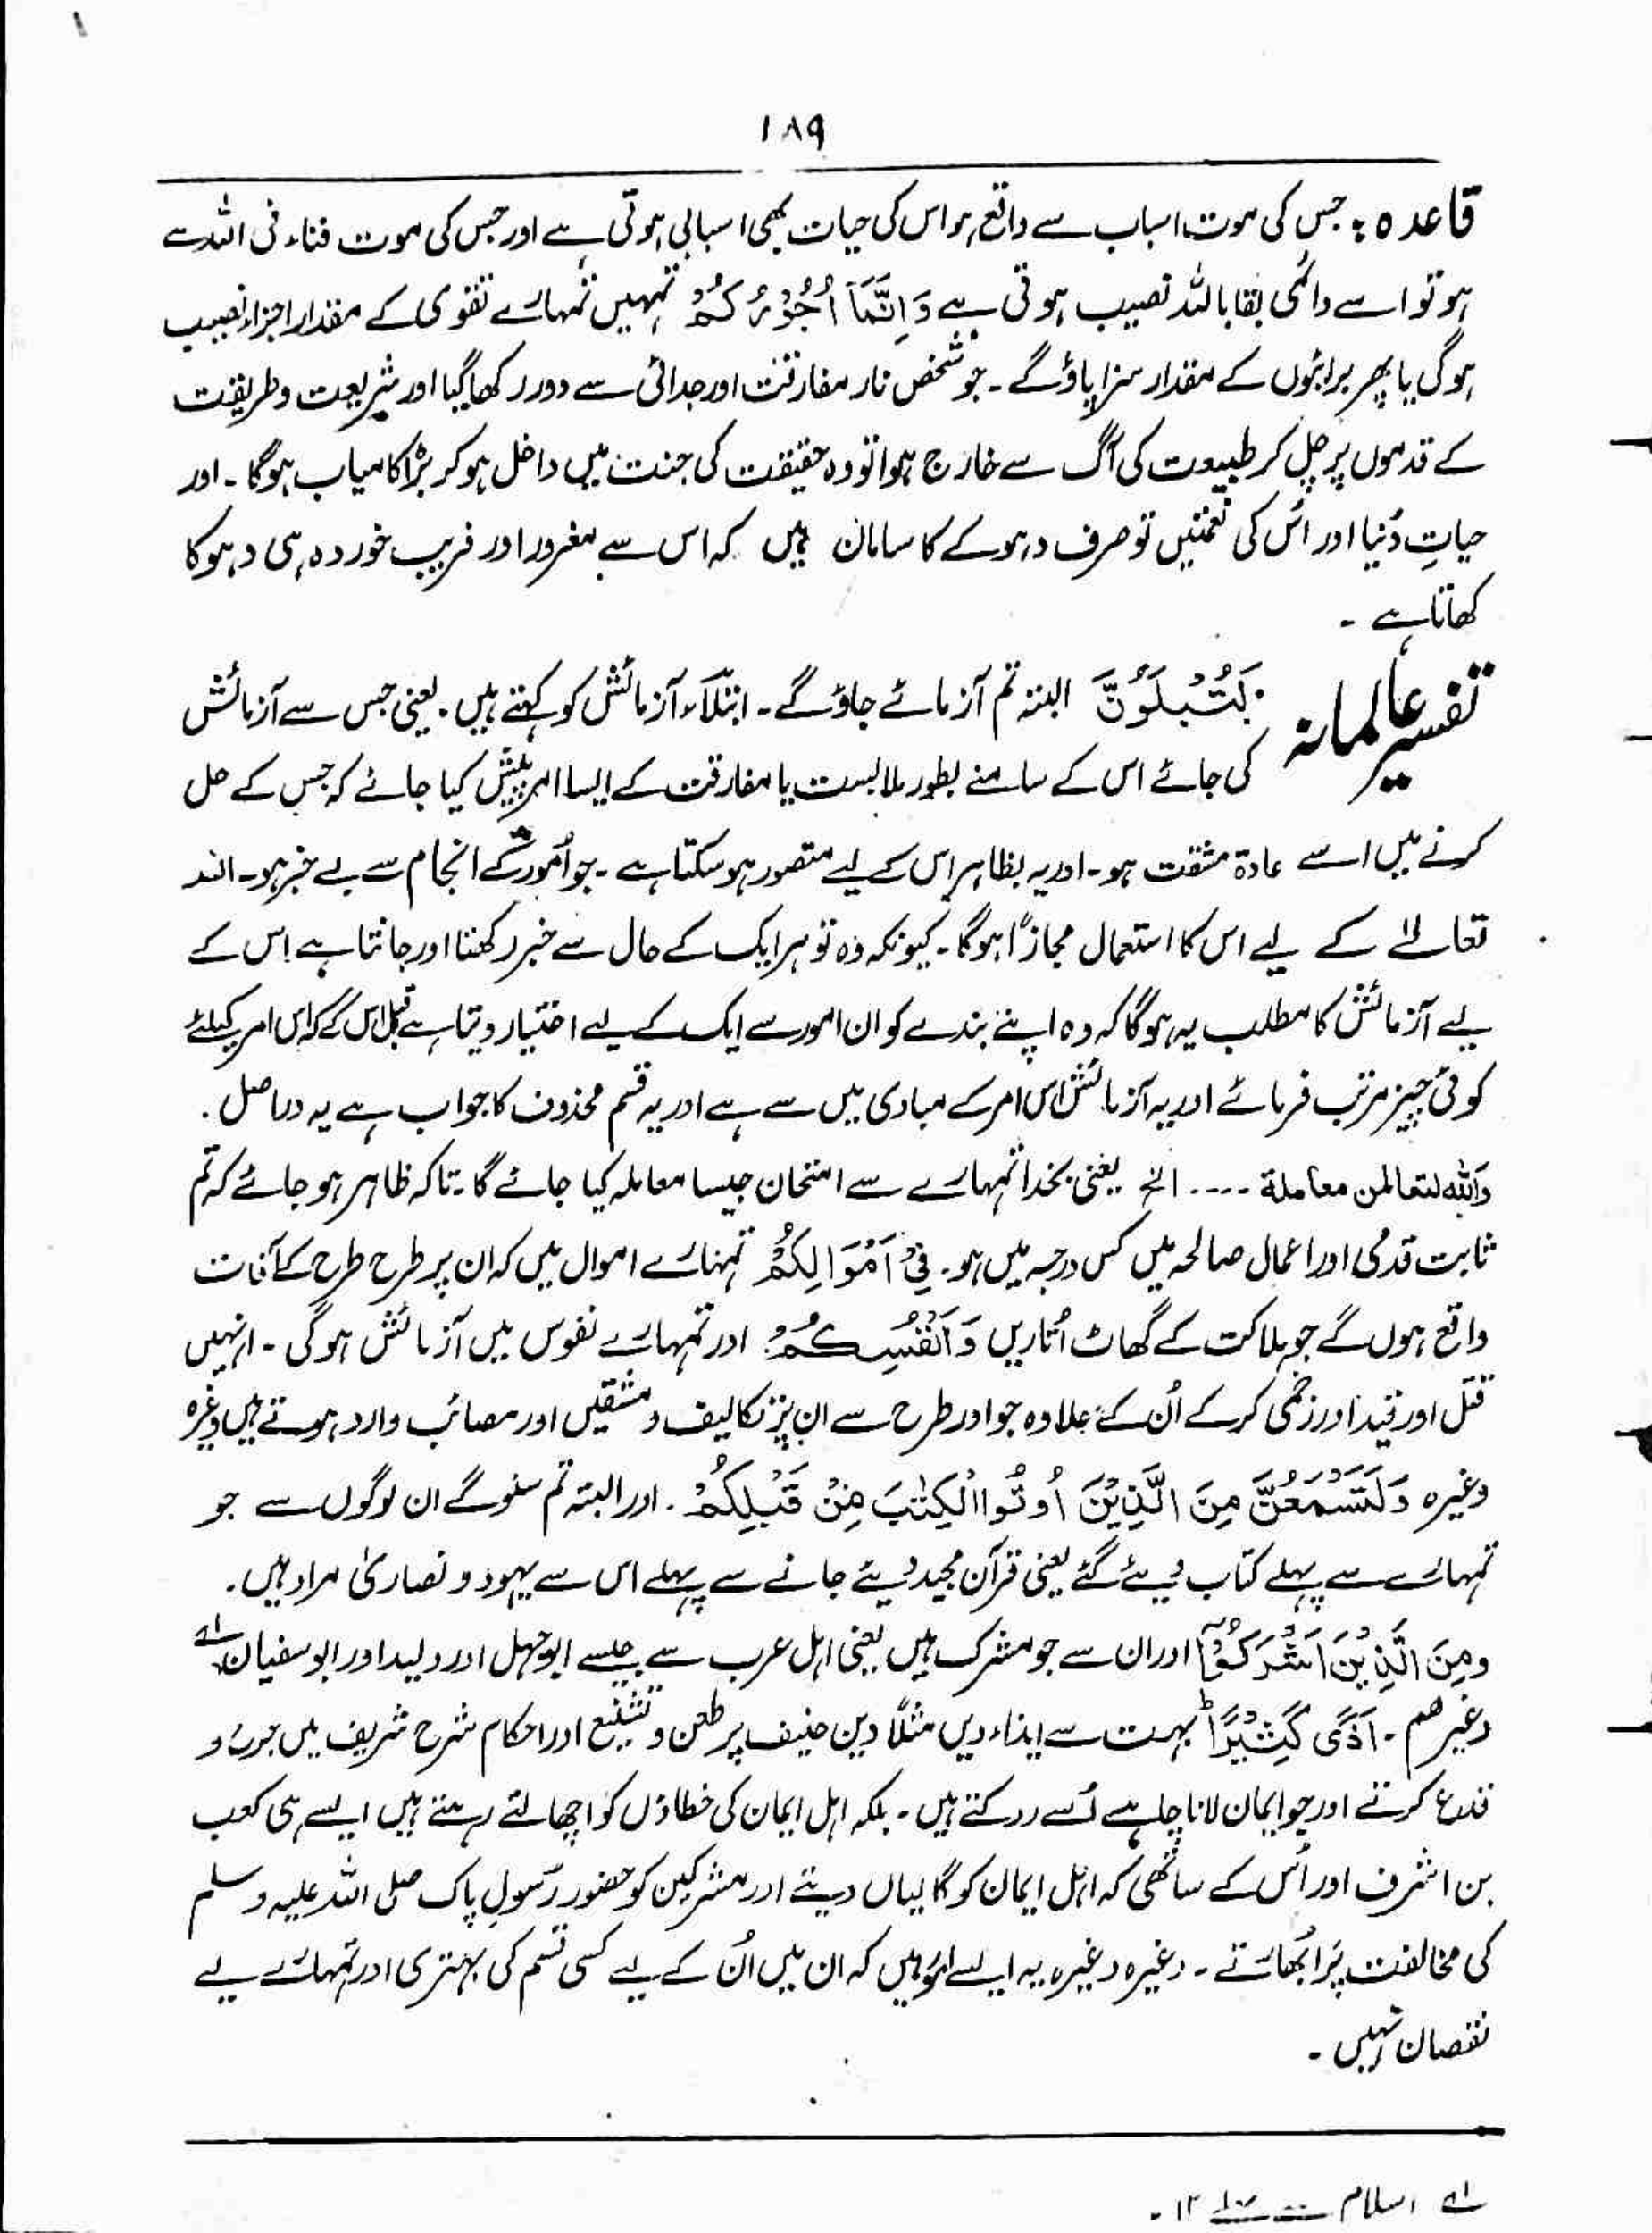 ۱۸۹
قاعدہ : جس کی موت اسباب سے واقع ہو اس کی حیات بھی اسبابی ہوتی ہے اور جس کی موت فناء فی اللہ سے
ہو تو اسے دائمی بقا باللہ نصیب ہوتی ہے وَاِنَّمَآ اُجُوْرُكُمْ تمہیں تمہارے تقویٰ کے مقدار اجزاء نصیب
ہوگی یا پھر برائیوں کے مقدار سزا پاؤ گے ۔ جو شخص نار مفارقت اور جدائی سے دور رکھا گیا اور شریعت و طریقت
کے قدموں پر چل کر طبیعت کی آگ سے خارج ہوا تو وہ حقیقت کی جنت میں داخل ہو کر بڑا کامیاب ہوگا ۔ اور
حیاتِ دُنیا اور اُس کی نعمتیں تو صرف دہوکے کا سامان ہیں کہ اس سے مغرور اور فریب خوردہ ہی دہوکا
کھاتا ہے ۔
تفسیر عالمانہ : لَتُبْلَوُنَّ البتہ تم آزمائے جاؤ گے ۔ ابتلاء آزمائش کو کہتے ہیں ۔ یعنی جس سے آزمائش
کی جائے اس کے سامنے بطور ملابست یا مفارقت کے ایسا امر پیش کیا جائے کہ جس کے حل
کرنے میں اسے عادۃ مشقت ہو ۔ اور یہ بظاہر اس کے لیے متصور ہو سکتا ہے ۔ جو اُمور کے انجام سے بے خبر ہو ۔ اللہ
تعالےٰ کے لیے اس کا استعمال مجازًا ہوگا ۔ کیونکہ وہ تو ہر ایک کے حال سے خبر رکھتا اور جانتا ہے اس کے
لیے آزمائش کا مطلب یہ ہوگا کہ وہ اپنے بندے کو ان امور سے ایک کے لیے اختیار دیتا ہے قبل اس کے کہ اس امر کیلئے
کوئی چیز مرتب فرمائے اور یہ آزمائش اس امر کے مبادی میں سے ہے اور یہ قسم محذوف کا جواب ہے یہ دراصل ۔
واللہ لتعالمن معاملۃ ۔۔۔۔ الخ یعنی بخدا تمہارے سے امتحان جیسا معاملہ کیا جائے گا ۔ تاکہ ظاہر ہو جائے کہ تم
ثابت قدمی اور اعمال صالحہ میں کس درجہ میں ہو ۔ فِیْٓ اَمْوَالِكُمْ تمہارے اموال میں کہ ان پر طرح طرح کے آفات
واقع ہوں گے جو ہلاکت کے گھاٹ اُتاریں وَ اَنْفُسِكُمْ اور تمہارے نفوس میں آزمائش ہوگی ۔ انہیں
قتل اور قید اور زخمی کر کے اُن کے علاوہ جو اور طرح سے ان پر تکالیف و مشقتیں اور مصائب وارد ہوتے ہیں وغیرہ
وغیرہ وَلَتَسْمَعُنَّ مِنَ الَّذِیْنَ اُوتُوا الْكِتٰبَ مِنْ قَبْلِكُمْ ۔ اور البتہ تم سنو گے ان لوگوں سے جو
تمہارے سے پہلے کتاب دیئے گئے یعنی قرآن مجید دیئے جانے سے پہلے اس سے یہود و نصاریٰ مراد ہیں ۔
وَمِنَ الَّذِیْنَ اَشْرَكُوْٓا اور ان سے جو مشرک ہیں یعنی اہل عرب سے جیسے ابوجہل اور ولید اور ابو سفیان لہ
وغیرھم ۔ اَذًى كَثِیْرًا ط بہت سے ایذاء دیں مثلًا دین حنیف پر طعن و تشنیع اور احکام شرح شریف میں جرح و
قدح کرتے اور جو ایمان لانا چاہے اُسے روکتے ہیں ۔ بلکہ اہل ایمان کی خطاؤں کو اچھالتے رہتے ہیں ایسے ہی کعب
بن اشرف اور اُس کے ساتھی کہ اہل ایمان کو گالیاں دیتے اور مشرکین کو حضور رسولِ پاک صلی اللہ علیہ وسلم
کی مخالفت پر اُبھارتے ۔ وغیرہ وغیرہ یہ ایسے امور ہیں کہ ان میں اُن کے لیے کسی قسم کی بہتری اور تمہارے لیے
نقصان نہیں ۔
لہ اسلام سے پہلے ۱۲ ۔